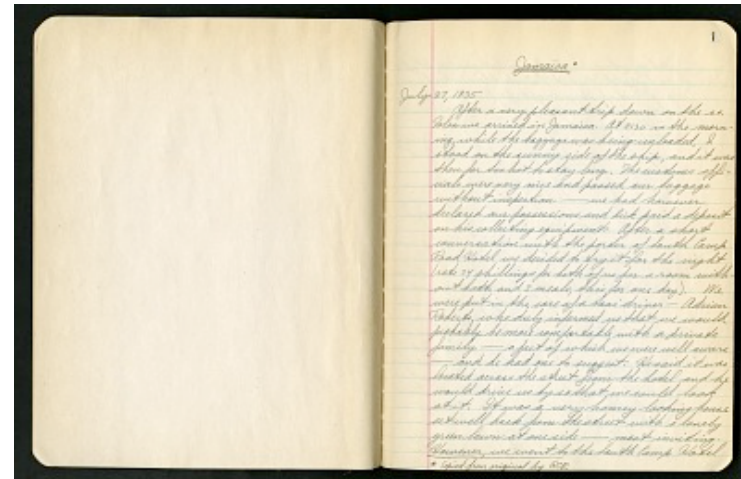 1
Jamaica*
July 27, 1935
After a very pleasant trip down on the st.
we arrived in Jamaica. At 8:30 in the morn-
ing, while the baggage was being unloaded, I
stood on the sunny side of the ship, and it was
then far too hot to stay long. The customs offi-
cials were very nice and passed our baggage
without inspection — we had however
declared our possessions and Dick paid a deposit
on his collecting equipment. After a short
conversation with the porter of South Camp
Road Hotel we decided to try it for the night
(rate 34 shillings for both of us for a room with-
out bath and 3 meals, this for one day). We
were put in the care of a taxi driver — Adrian
Roberts, who duly informed us that we would
probably be more comfortable with a private
family — a fact of which we were well aware
— and he had one to suggest. He said it was
located across the street from the hotel and he
would drive us by so that we could look
at it. It was a very homey looking place
set well back from the street with a lovely
green lawn at one side — most inviting.
However, we went to the South Camp Hotel
* Copied from original by